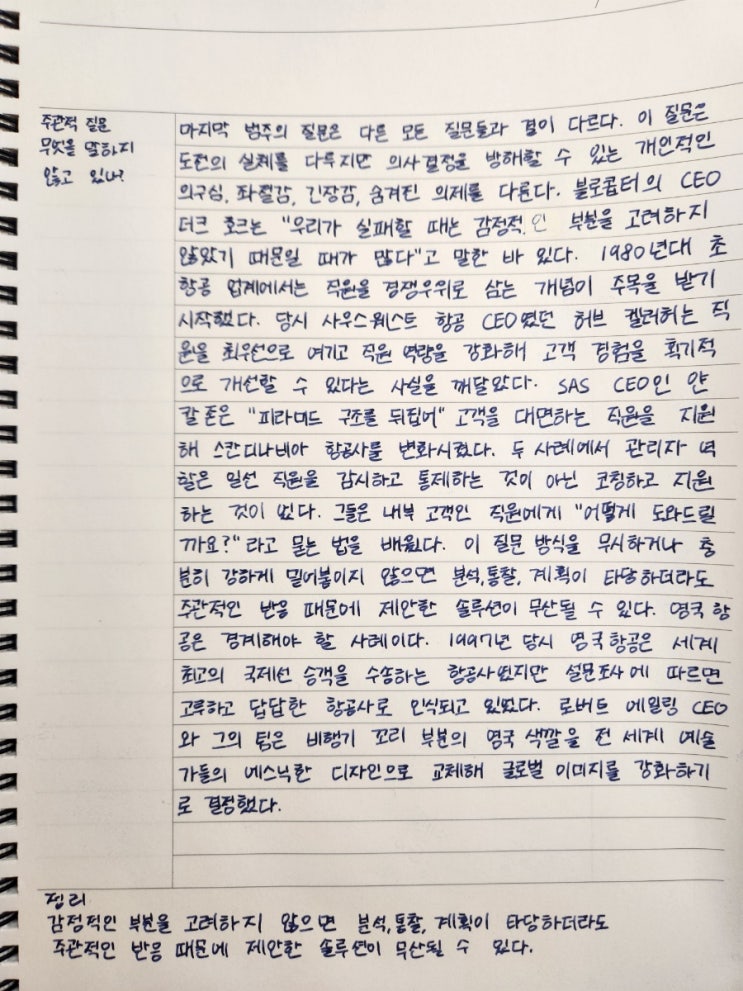 주관적 질문
무엇을 말하지
않고 있나?
마지막 범주의 질문은 다른 모든 질문들과 결이 다르다. 이 질문은
도전의 실체를 다루지만 의사결정을 방해할 수 있는 개인적인
의구심, 좌절감, 긴장감, 숨겨진 의제를 다룬다. 볼로콥터의 CEO
더크 호크는 "우리가 실패할 때는 감정적인 부분을 고려하지
않았기 때문일 때가 많다"고 말한 바 있다. 1980년대 초
항공 업계에서는 직원을 경쟁우위로 삼는 개념이 주목을 받기
시작했다. 당시 사우스웨스트 항공 CEO였던 허브 켈러허는 직
원을 최우선으로 여기고 직원 역량을 강화해 고객 경험을 획기적
으로 개선할 수 있다는 사실을 깨달았다. SAS CEO인 얀
칼 존은 "피라미드 구조를 뒤집어" 고객을 대면하는 직원을 지원
해 스칸디나비아 항공사를 변화시켰다. 두 사례에서 관리자 역
할은 일선 직원을 감시하고 통제하는 것이 아닌 코칭하고 지원
하는 것이 었다. 그들은 내부 고객인 직원에게 "어떻게 도와드릴
까요?"라고 묻는 법을 배웠다. 이 질문 방식을 무시하거나 충
분히 강하게 밀어붙이지 않으면 분석, 통찰, 계획이 타당하더라도
주관적인 반응 때문에 제안한 솔루션이 무산될 수 있다. 영국 항
공은 경계해야 할 사례이다. 1997년 당시 영국항공은 세계
최고의 국제선 승객을 수송하는 항공사였지만 설문조사에 따르면
고루하고 답답한 항공사로 인식되고 있었다. 로버트 에일링 CEO
와 그의 팀은 비행기 꼬리 부분의 영국 색깔을 전 세계 예술
가들의 에스닉한 디자인으로 교체해 글로벌 이미지를 강화하기
로 결정했다.
정리
감정적인 부분을 고려하지 않으면 분석, 통찰, 계획이 타당하더라도
주관적인 반응 때문에 제안한 솔루션이 무산될 수 있다.